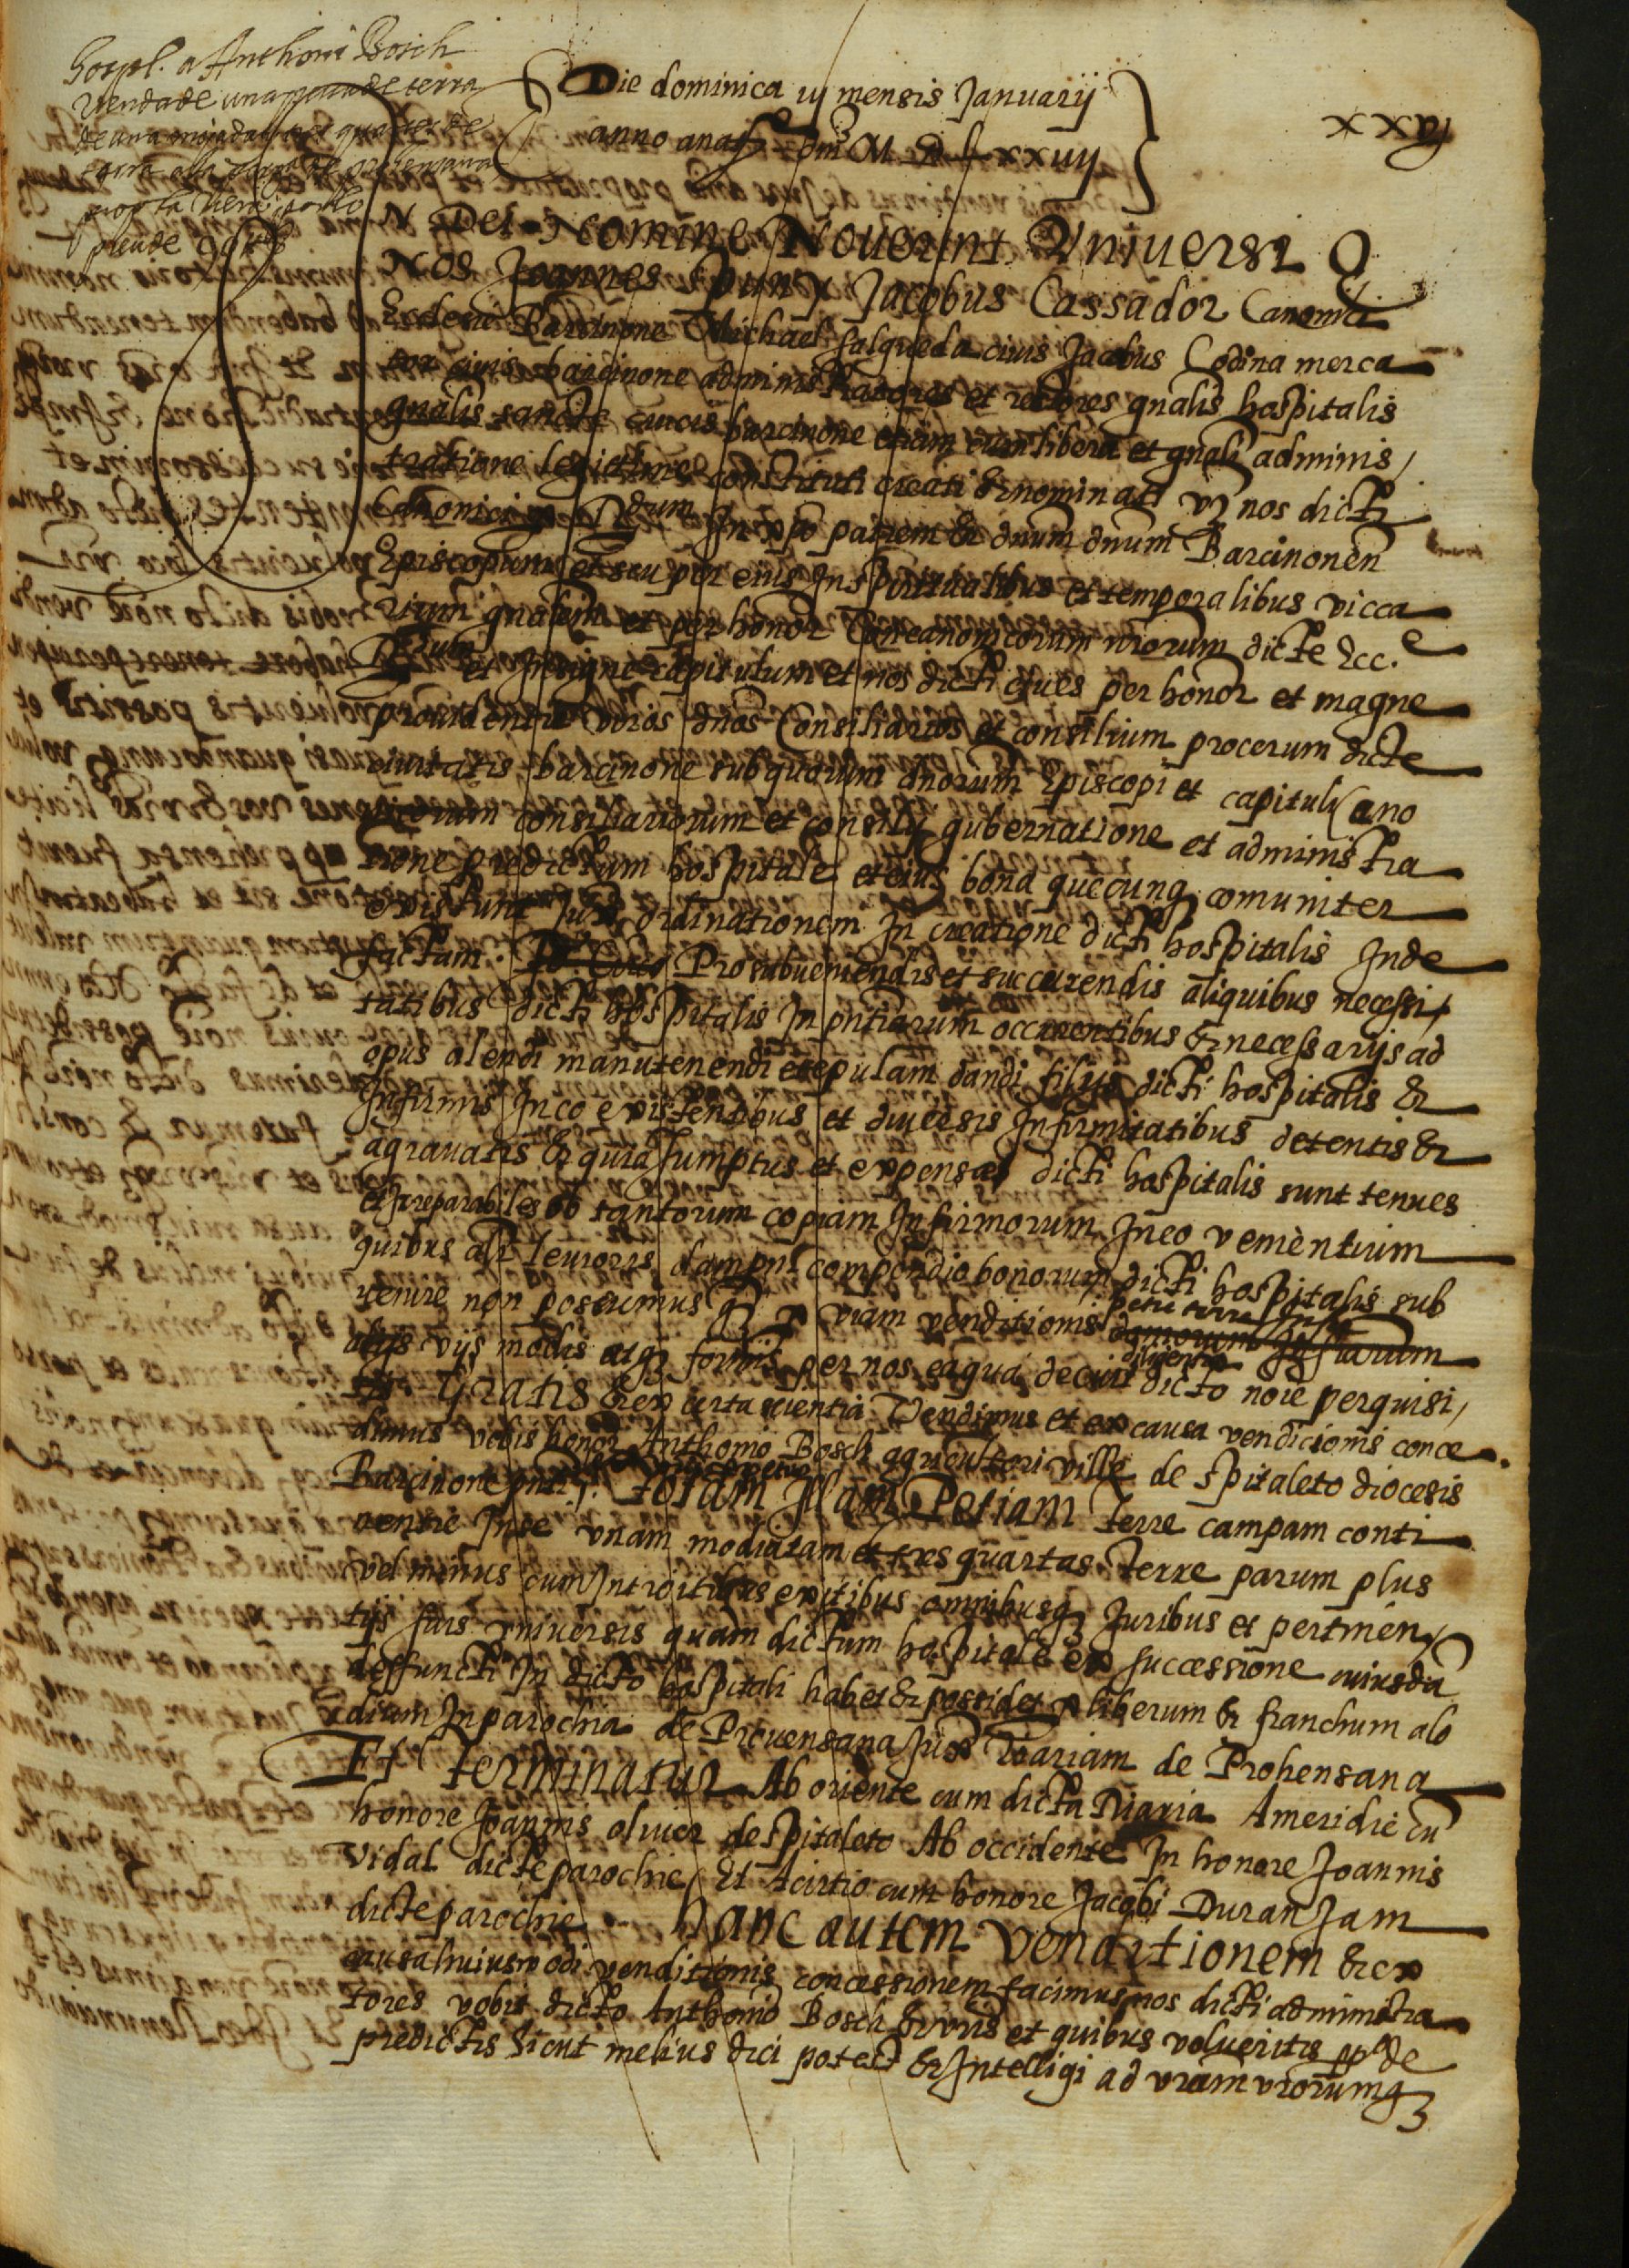 Hospl. a Anthoni Bosch
Venda de una pessa de terra
de una mujada
pro
Die dominica iij mensis Januarij
anno a nat dni M D lxxiiij
lxxx
N Dei Nomine Noverint Universi Q
Nos Joannes Jacobus Cassador Canonici
Ecclesie Barcinone Michael Salqueda civis Jacobus Codina merca
tor civis barcinone administratores et rectores gnalis hospitalis
gnalis sancte crucis barcinone etiam cum libera et gnali adminis
tratione legittime constituti creati & nominati vz nos dicti
Canonici p Rdum In xpo patrem & dnum dnum Barcinonen
Episcopum et seu per eius In spiritualibus et temporalibus vicca
rium gnalem et per honor Concanonicorum nrorum dicte Ecc.e
Rdum et Insigne capitulum et nos dicti cives per honor et magne
providentie viros dnos Consiliarios et consilium procerum dicte
civitatis barcinone sub quorum dnorum Episcopi et capituli Cano
nicorum consiliariorum et consilij gubernatione et administra
tione predictum hospitale et eius bona quecunq comuniter
existunt Juxa ordinationem In creatione dicti hospitalis Inde
factam. Pro subveniendis et succurrendis aliquibus necessi
tatibus dicti hospitalis In pntiarum occurrentibus & necessarijs ad
opus alendi manutenendi et epulam dandi filijs dicti hospitalis &
Infirmis In eo existentibus et diversis Infirmitatibus detentis &
agravatis & quia sumptus et expensas dicti hospitalis sunt tenues
et Irreparabiles ob tantorum copiam Infirmorum In eo venientium
quibus alr levioris dampni compendio bonorum dicti hospitalis sub
venire non possumus qz p viam venditionis petie terre
alijs vijs modis atqz formis per nos ea qua decuit diligentia dicto noie perquisi
tis Gratis & ex certa scientia Vendimus et ex causa vendicionis conce
dimus vobis honor Anthonio Bosch agricultori ville de spitaleto diocesis
Barcinone pnti totam Illam Petiam terre campam conti
nentie In se unam modiatam et tres quartas terre parum plus
vel minus cum Introitibus exitibus omnibusqz Juribus et pertinen
tijs suis universis quam dictum hospitale ex successione cuiusda
deffuncti In dicto hospitali habet & possidet p liberum & franchum alo
dium In parochia de Provensana Juxa Riariam de Prohensana
Et terminatur Ab oriente cum dicta Riaria A meridie cu
honore Joannis oliver de spitaleto Ab occidente In honore Joannis
Vidal dicte parochie Et A circio cum honore Jacobi Duran Jam
dicte parochie Hanc autem Venditionem & ex
causa huiusmodi venditionis concessionem facimus nos dicti administra
tores vobis dicto Anthonio Bosch & vris et quibus volueritis ppe de
predictis Sicut melius dici potest & Intelligi ad vram vrorumqz